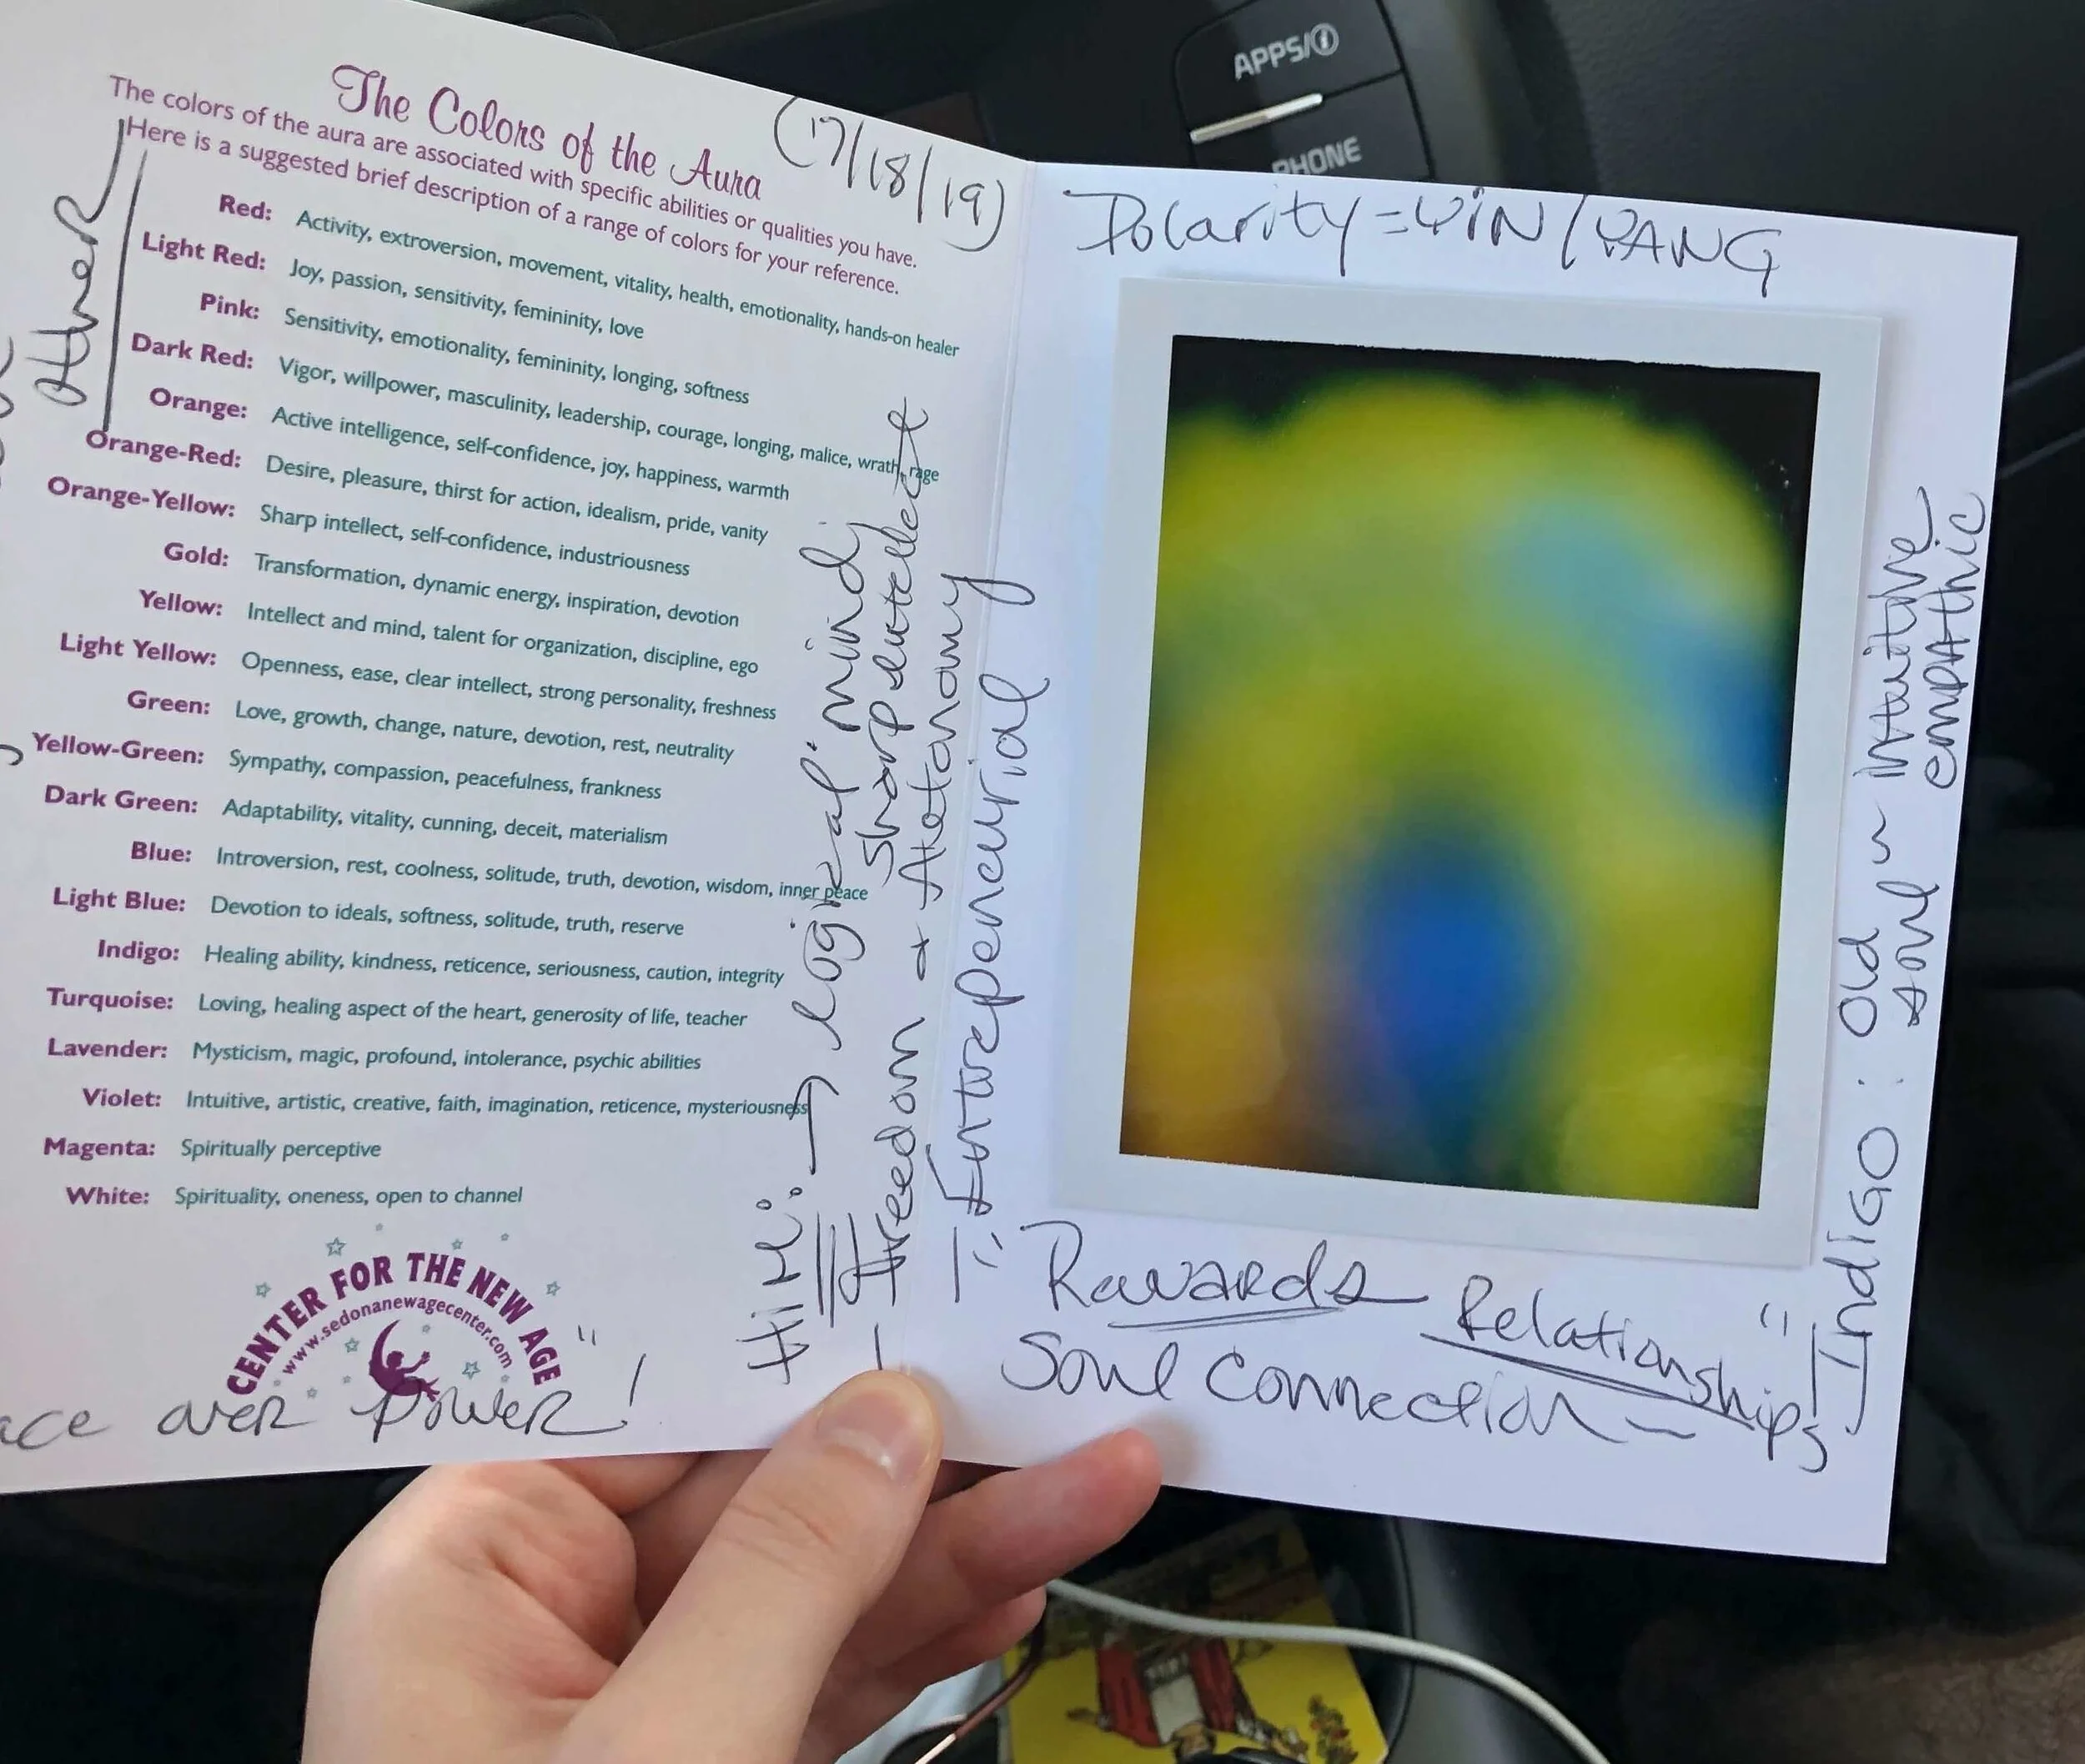 APPS/i
PHONE
The Colors of the Aura
(7/18/19)
The colors of the aura are associated with specific abilities or qualities you have.
Here is a suggested brief description of a range of colors for your reference.
Red: Activity, extroversion, movement, vitality, health, emotionality, hands-on healer
Light Red: Joy, passion, sensitivity, femininity, love
Pink: Sensitivity, emotionality, femininity, longing, softness
Dark Red: Vigor, willpower, masculinity, leadership, courage, longing, malice, wrath, rage
Orange: Active intelligence, self-confidence, joy, happiness, warmth
Orange-Red: Desire, pleasure, thirst for action, idealism, pride, vanity
Orange-Yellow: Sharp intellect, self-confidence, industriousness
Gold: Transformation, dynamic energy, inspiration, devotion
Yellow: Intellect and mind, talent for organization, discipline, ego
Light Yellow: Openness, ease, clear intellect, strong personality, freshness
Green: Love, growth, change, nature, devotion, rest, neutrality
Yellow-Green: Sympathy, compassion, peacefulness, frankness
Dark Green: Adaptability, vitality, cunning, deceit, materialism
Blue: Introversion, rest, coolness, solitude, truth, devotion, wisdom, inner peace
Light Blue: Devotion to ideals, softness, solitude, truth, reserve
Indigo: Healing ability, kindness, reticence, seriousness, caution, integrity
Turquoise: Loving, healing aspect of the heart, generosity of life, teacher
Lavender: Mysticism, magic, profound, intolerance, psychic abilities
Violet: Intuitive, artistic, creative, faith, imagination, reticence, mysteriousness
Magenta: Spiritually perceptive
White: Spirituality, oneness, open to channel
CENTER FOR THE NEW AGE
www.sedonanewagecenter.com
over Power"!
logical mind
sharp
Freedom +
Polarity = YIN/YANG
Rewards Relationships
Soul Connection ~
Indigo: Old soul ~ intuitive
empathic